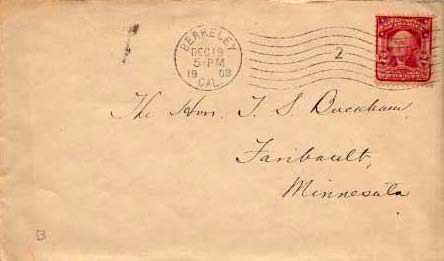 BERKELEY
DEC 19
5-PM
1908
CAL.
2
The Hon. T. S. Buckham,
Faribault,
Minnesota
B